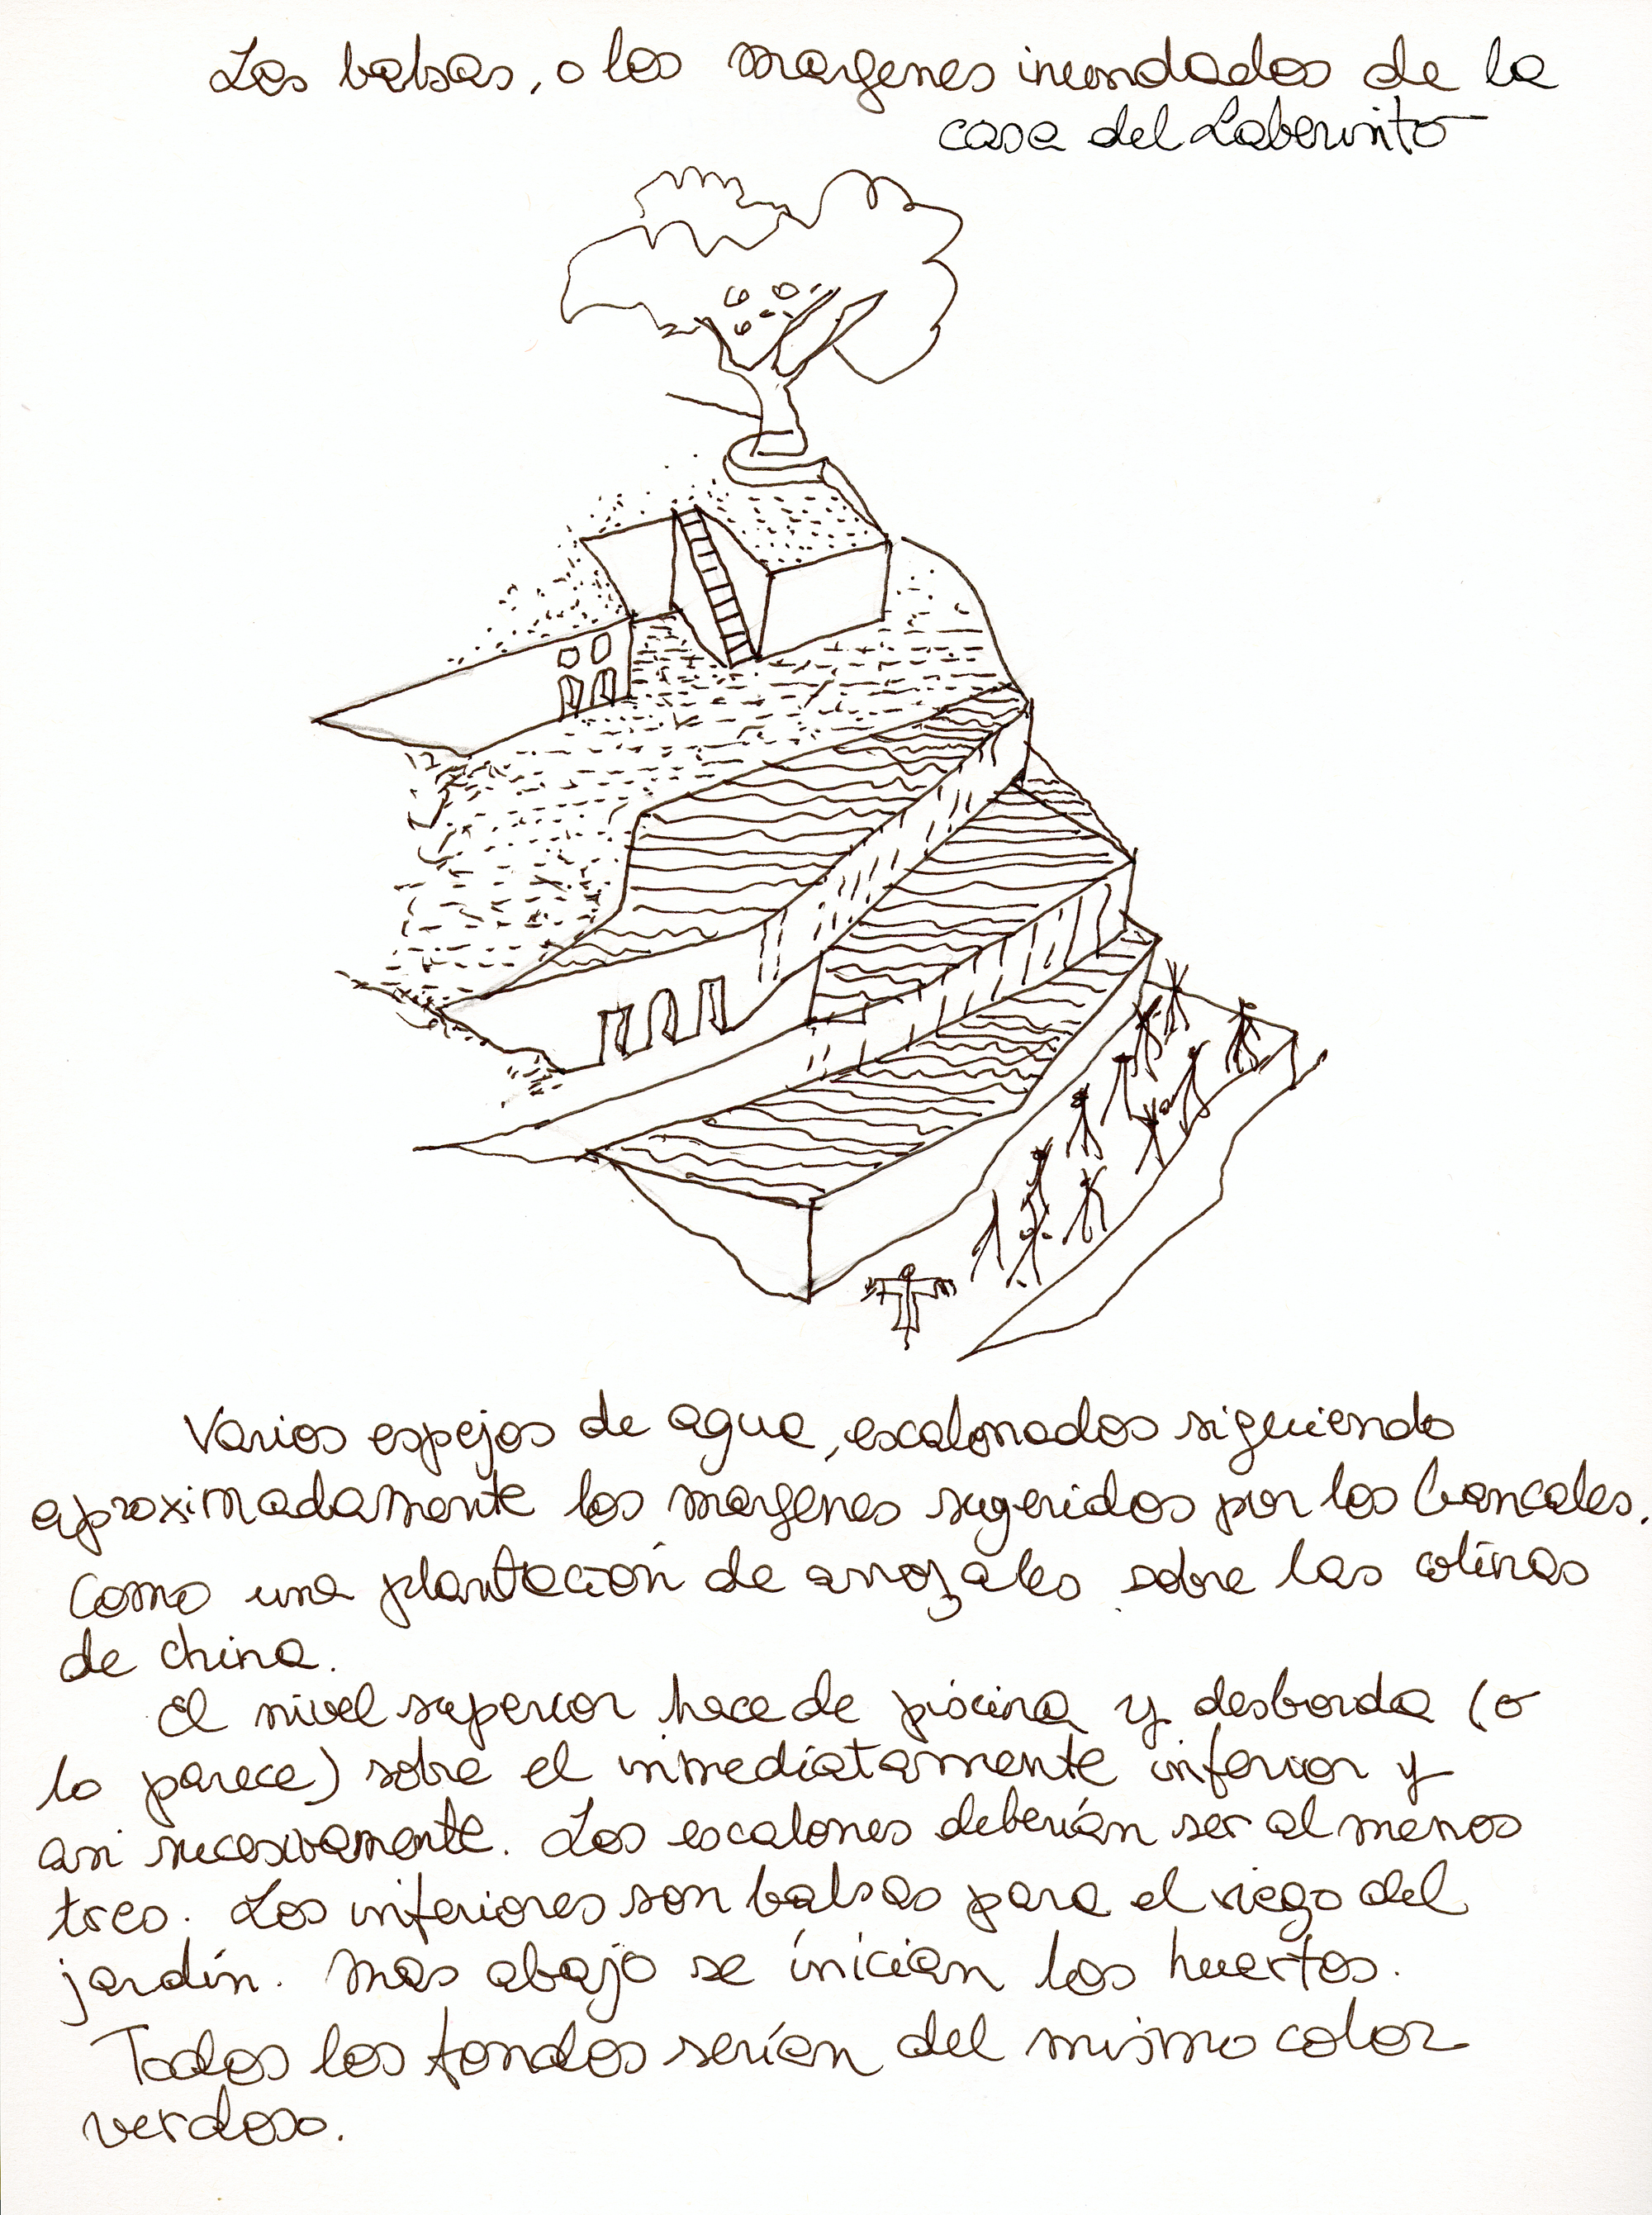 Las balsas, o los margenes inundados de la
casa del Laberinto
Varios espejos de agua, escalonados siguiendo
aproximadamente los margenes sugeridos por los bancales.
Como una plantación de arrozales sobre las colinas
de china.
El nivel superior hace de piscina y desborda (o
lo parece) sobre el inmediatamente inferior y
asi sucesivamente. Los escalones deberían ser al menos
tres. Los inferiores son balsas para el riego del
jardín. Mas abajo se inician los huertos.
Todos los fondos serían del mismo color
verdoso.